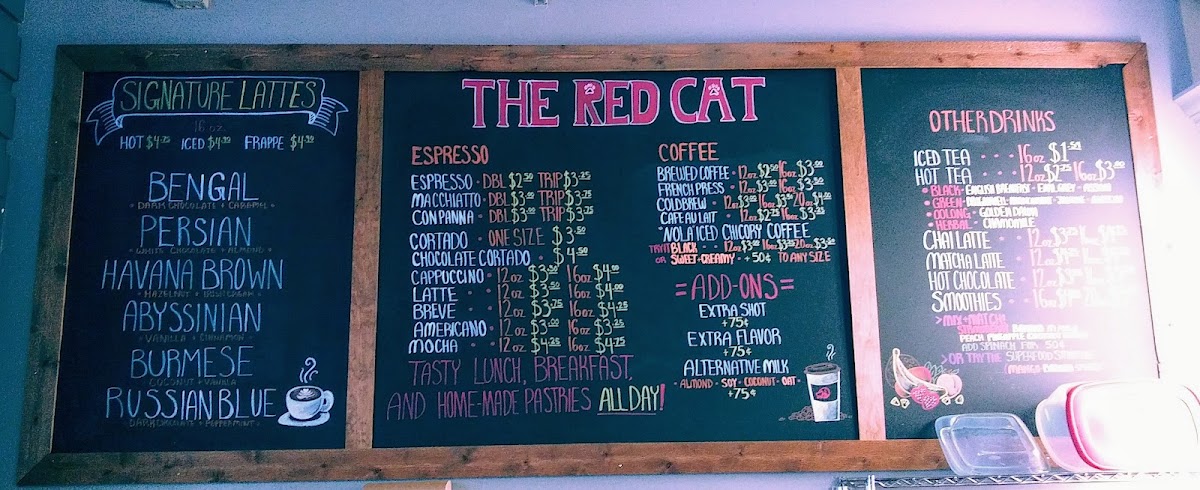 SIGNATURE LATTES
16 oz.
HOT $4.75 ICED $4.75 FRAPPE $4.99
BENGAL
• DARK CHOCOLATE + CARAMEL •
PERSIAN
• WHITE CHOCOLATE + ALMOND •
HAVANA BROWN
• HAZELNUT + IRISH CREAM •
ABYSSINIAN
• VANILLA + CINNAMON •
BURMESE
COCONUT + VANILLA
RUSSIAN BLUE
• DARK CHOCOLATE + PEPPERMINT •
THE RED CAT
ESPRESSO
ESPRESSO • DBL $2.50 TRIP $3.25
MACCHIATTO • DBL $3.00 TRIP $3.75
CON PANNA • DBL $3.00 TRIP $3.75
CORTADO • ONE SIZE $3.50
CHOCOLATE CORTADO • $4.50
CAPPUCCINO • 12oz $3.50 16oz $4.00
LATTE 12oz $3.50 16oz $4.00
BREVE 12oz $3.75 16oz $4.25
AMERICANO • 12oz $3.00 16oz $3.25
MOCHA 12oz $4.25 16oz $4.75
TASTY LUNCH, BREAKFAST,
AND HOME-MADE PASTRIES ALL DAY!
COFFEE
BREWED COFFEE • 12oz $2.50 16oz $3.00
FRENCH PRESS • 12oz $3.00 16oz $3.50
COLD BREW • 12oz $3.00 16oz $3.50 20oz $4.00
CAFE AU LAIT • 12oz $2.75 16oz $3.25
NOLA ICED CHICORY COFFEE
TRY IT BLACK 12oz $3.00 16oz $3.25 20oz $3.50
OR SWEET + CREAMY • +50¢ TO ANY SIZE
=ADD-ONS=
EXTRA SHOT
+75¢
EXTRA FLAVOR
+75¢
ALTERNATIVE MILK
• ALMOND • SOY • COCONUT • OAT •
+75¢
OTHER DRINKS
ICED TEA 16oz $1.50
HOT TEA 12oz $2.75 16oz $3.00
• BLACK • ENGLISH BREAKFAST • EARL GREY • ASSAM
• GREEN •
• OOLONG • GOLDEN DAWN
• HERBAL • CHAMOMILE
CHAI LATTE 12oz 16oz
MATCHA LATTE 12oz
HOT CHOCOLATE 12oz
SMOOTHIES 16oz
> MIX + MATCH!
STRAWBERRY BANANA
PEACH PINEAPPLE
ADD SPINACH FOR 50¢
> OR TRY THE SUPERFOOD
(MANGO